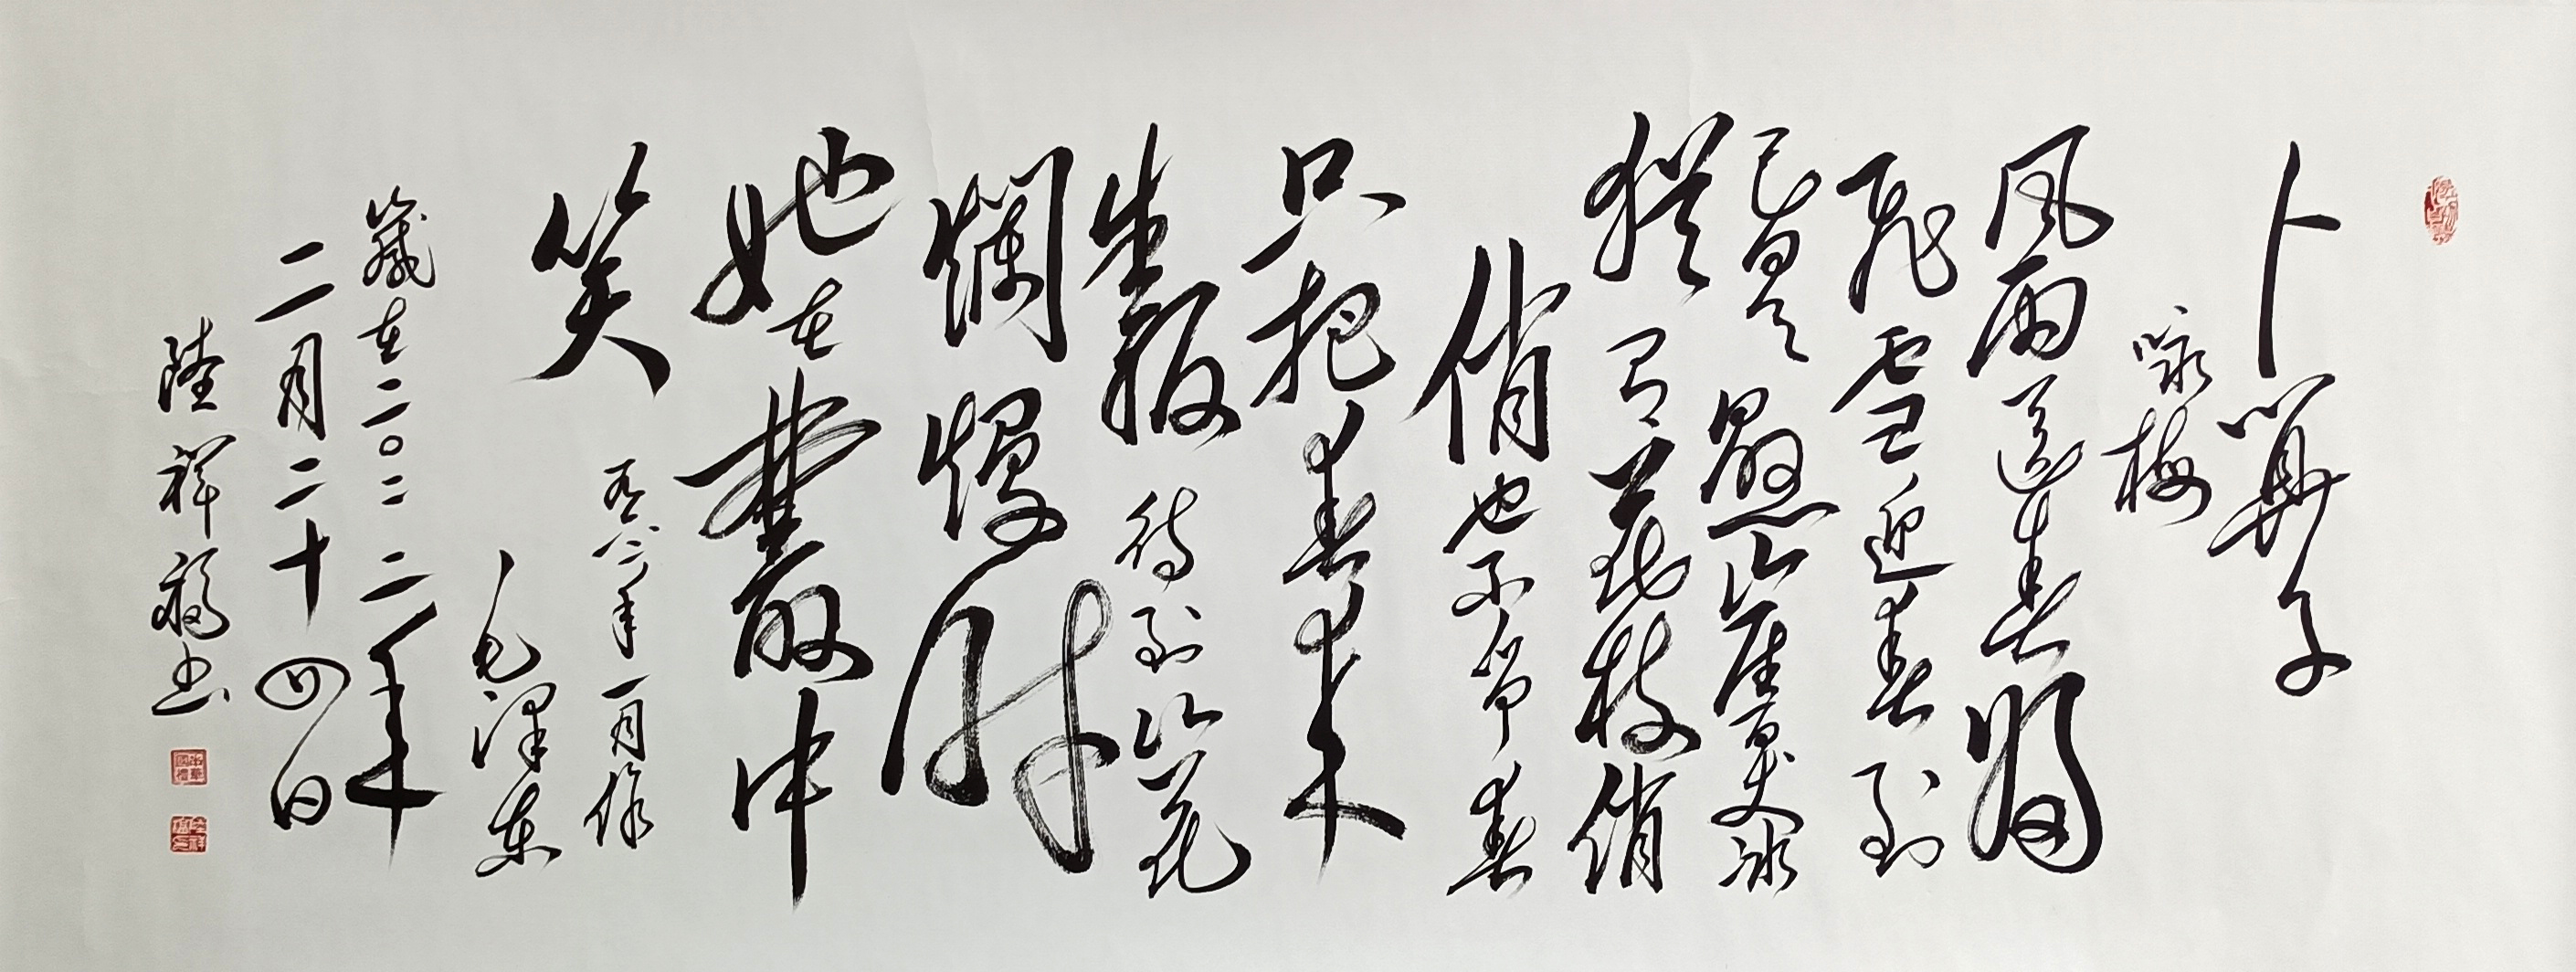 卜算子
咏梅
风雨送春归
飞雪迎春到
已是懸崖百丈冰
犹有花枝俏
俏也不争春
只把春来
報 待到山花
爛熳时
她在叢中
笑
一九六二年一月作
毛澤东
歲在二〇二二年
二月二十四日
陸祥福书
中華國禮
陸祥福印